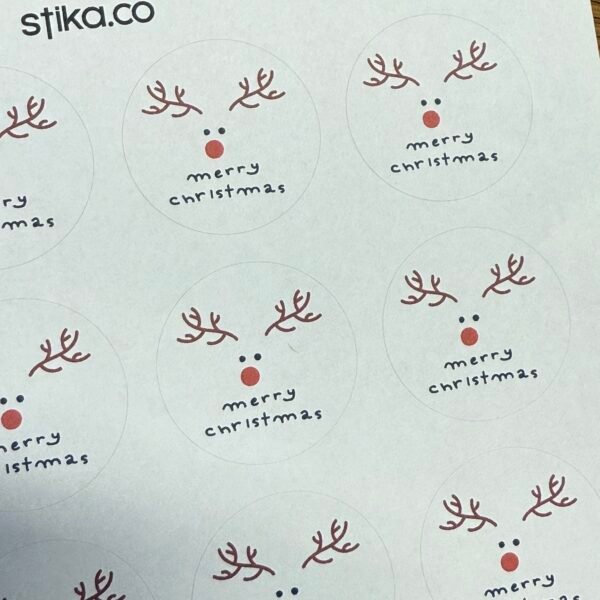 stika.co
merry
christmas
merry
christmas
ry
mas
merry
christmas
merry
christmas
erry
istmas
merry